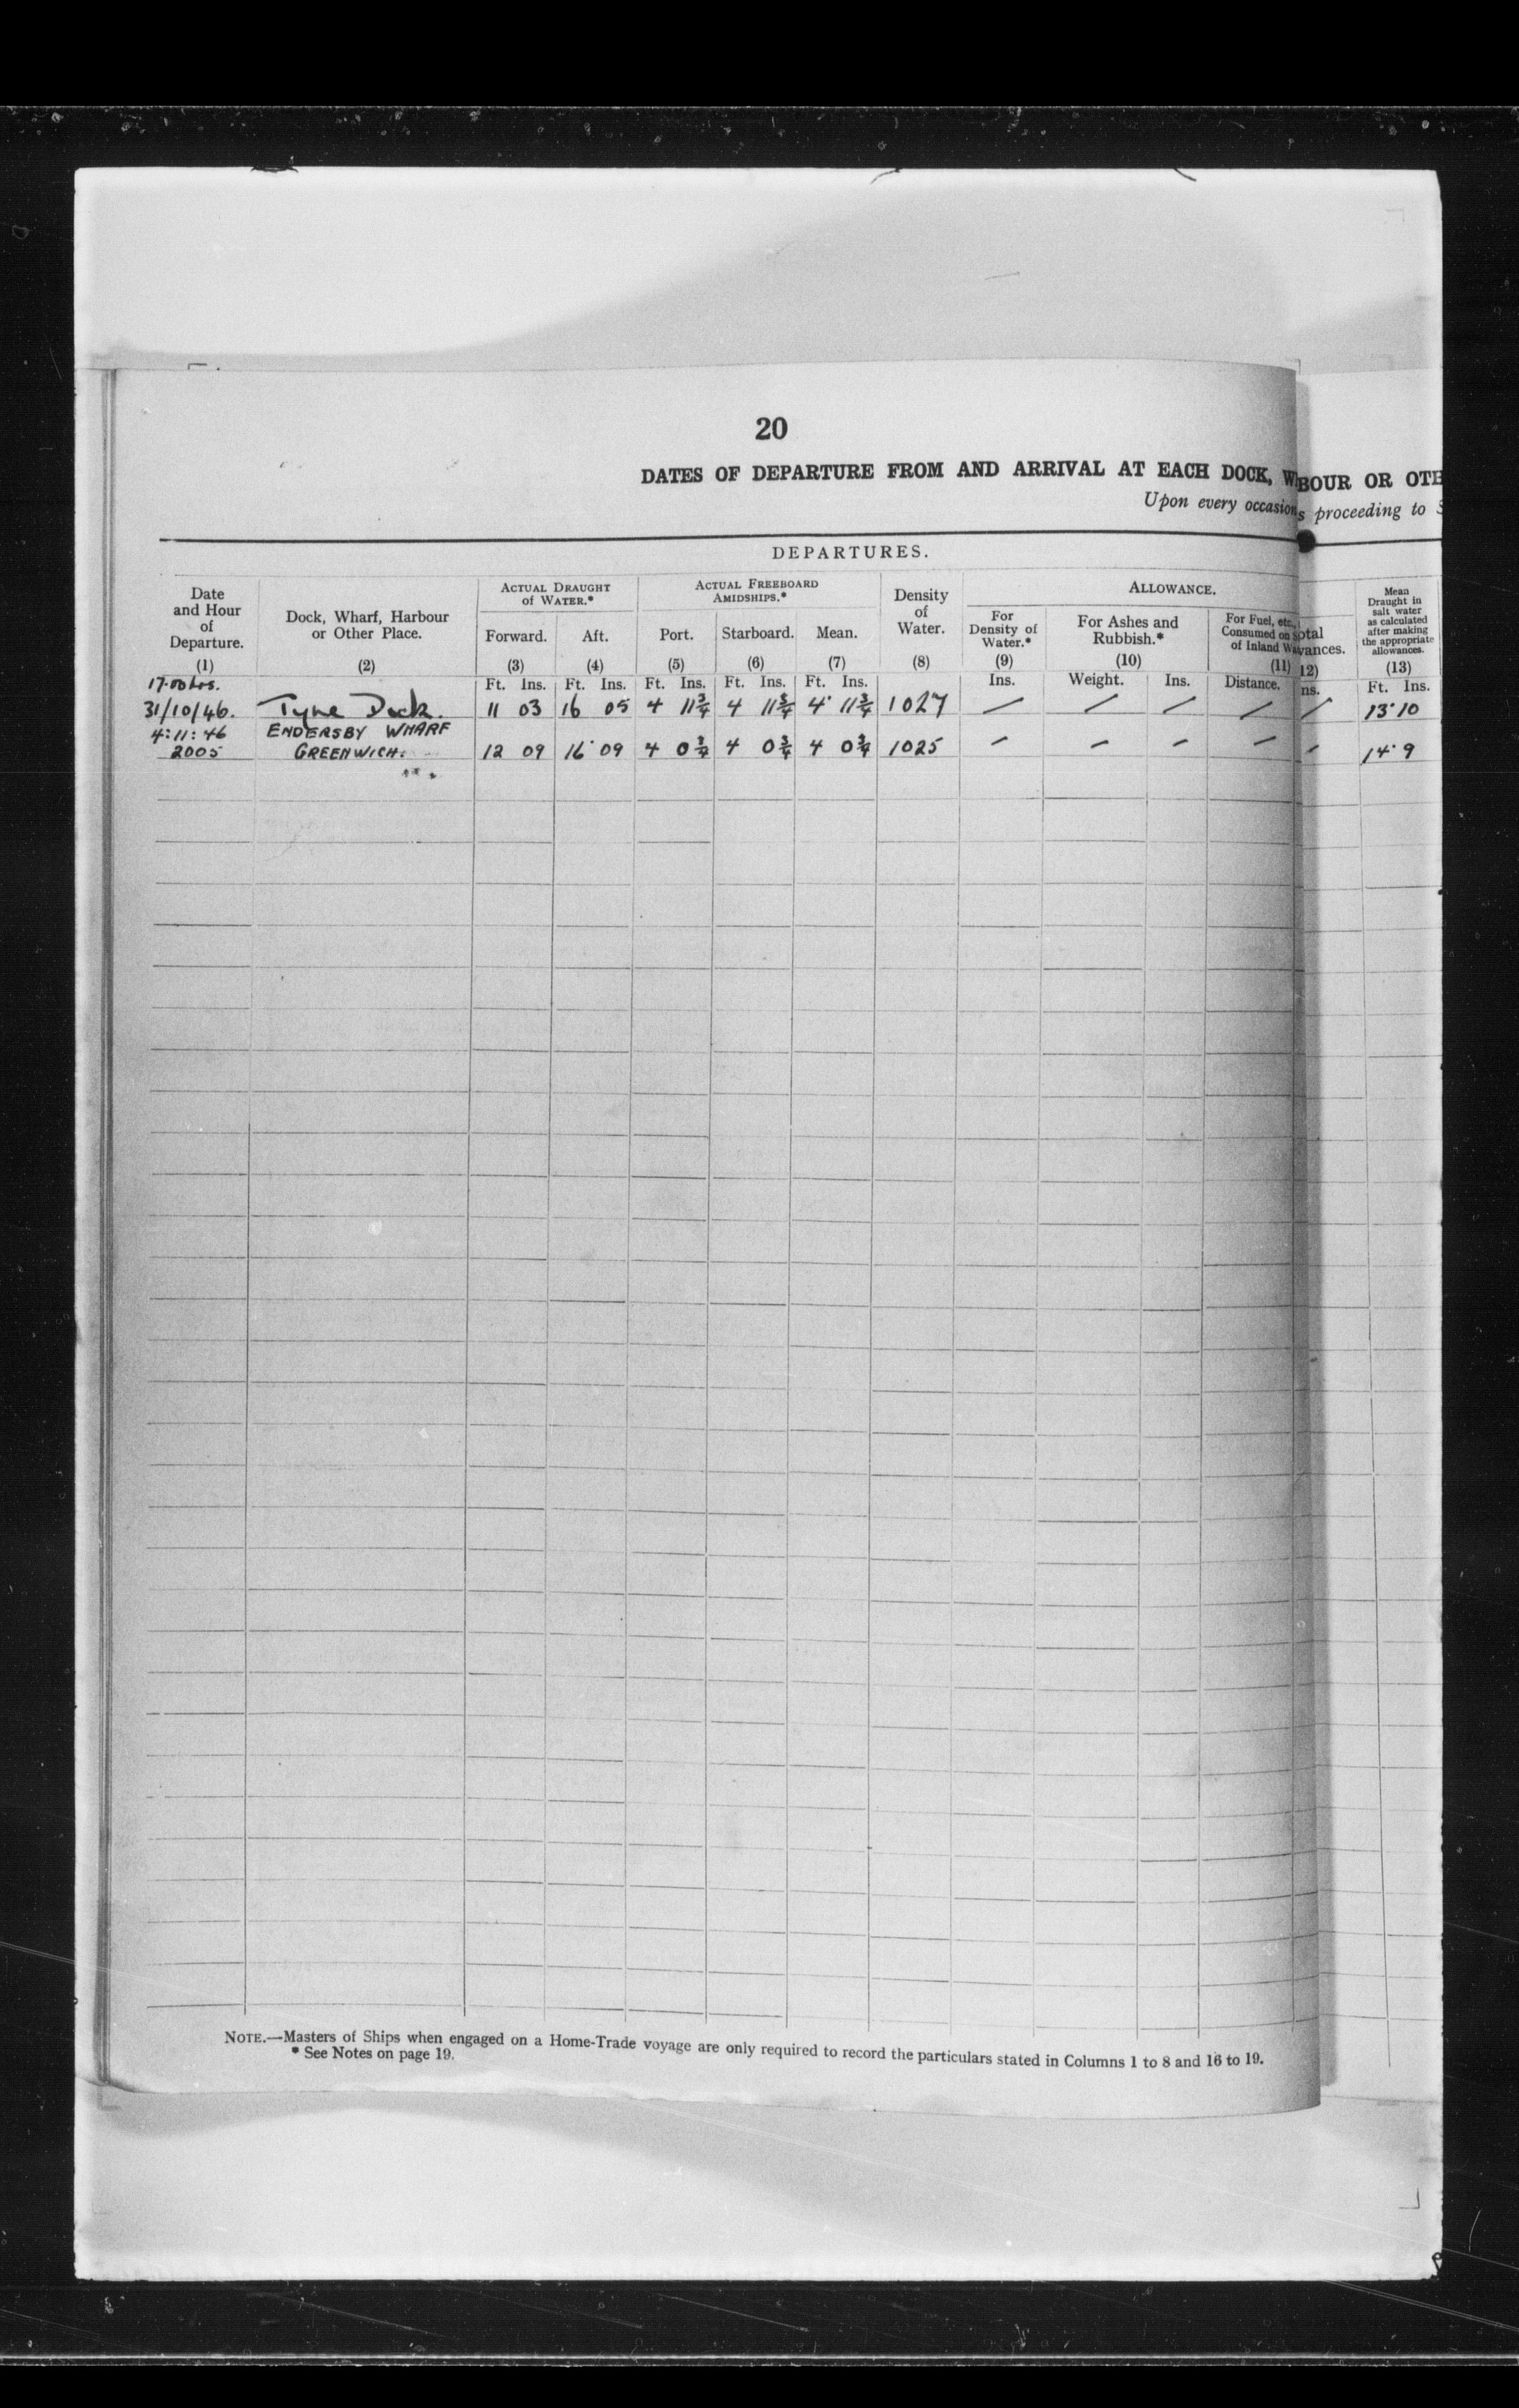 20
DATES OF DEPARTURE FROM AND ARRIVAL AT EACH DOCK, W BOUR OR OTH
Upon every occasion s proceeding to S
DEPARTURES.
Date and Hour of Departure. (1)
Dock, Wharf, Harbour or Other Place. (2)
ACTUAL DRAUGHT of WATER.*
Forward. (3) Aft. (4)
ACTUAL FREEBOARD AMIDSHIPS.*
Port. (5) Starboard. (6) Mean. (7)
Density of Water. (8)
ALLOWANCE.
For Density of Water.* (9)
For Ashes and Rubbish.* (10)
For Fuel, etc., Consumed on s of Inland Wa (11)
otal wances. 12)
Mean Draught in salt water as calculated after making the appropriate allowances. (13)
Ft. Ins. Ft. Ins. Ft. Ins. Ft. Ins. Ft. Ins. Ins. Weight. Ins. Distance. ns. Ft. Ins.
17.00 hrs.
31/10/46. Tyne Dock. 11 03 16 05 4 11¾ 4 11¾ 4 11¾ 1027 / / / / / 13 10
4:11:46 ENDERSBY WHARF
2005 GREENWICH. 12 09 16 09 4 0¾ 4 0¾ 4 0¾ 1025 – – – – – 14 9
NOTE.—Masters of Ships when engaged on a Home-Trade voyage are only required to record the particulars stated in Columns 1 to 8 and 16 to 19.
* See Notes on page 19.